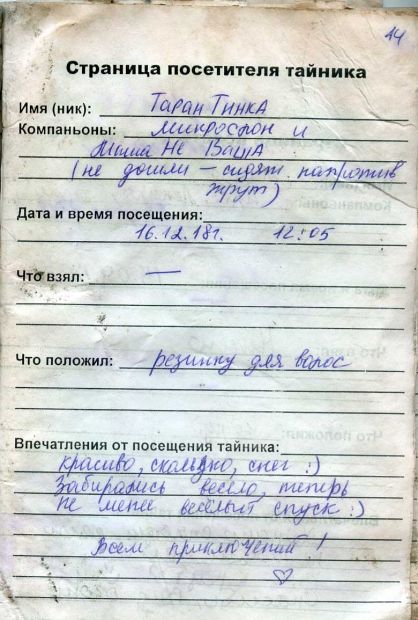 14
Страница посетителя тайника
Имя (ник): ТаранТинкА
Компаньоны: Микрослон и
Мыша Не Ваша
(не дошли – сидят напротив
жрут)
Дата и время посещения:
16.12.18г. 12:05
Что взял: —
Что положил: резинку для волос
Впечатления от посещения тайника:
красиво, скользко, снег :)
Забирались весело, теперь
не менее весёлый спуск :)
Всем приключений!
♡